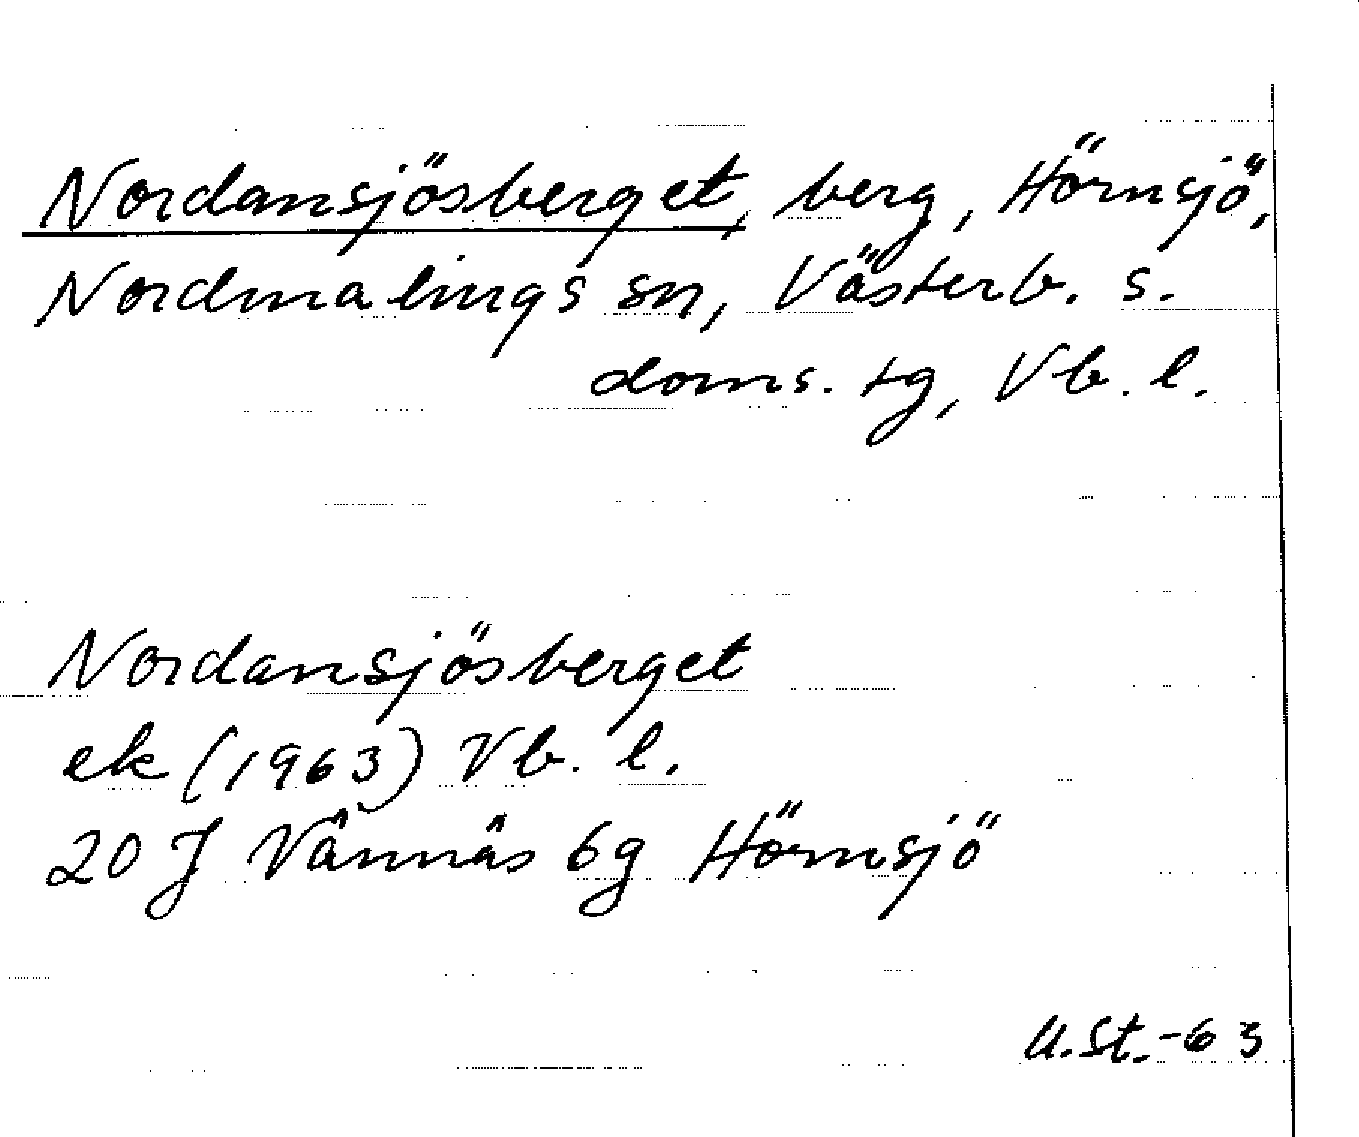 Nordansjösberget, berg, Hörnsjö,
Nordmalings sn, Västerb. s.
doms. tg, Vb. l.
Nordansjösberget
ek (1963) Vb. l.
20 J Vännäs 6g Hörnsjö
U.St.-63